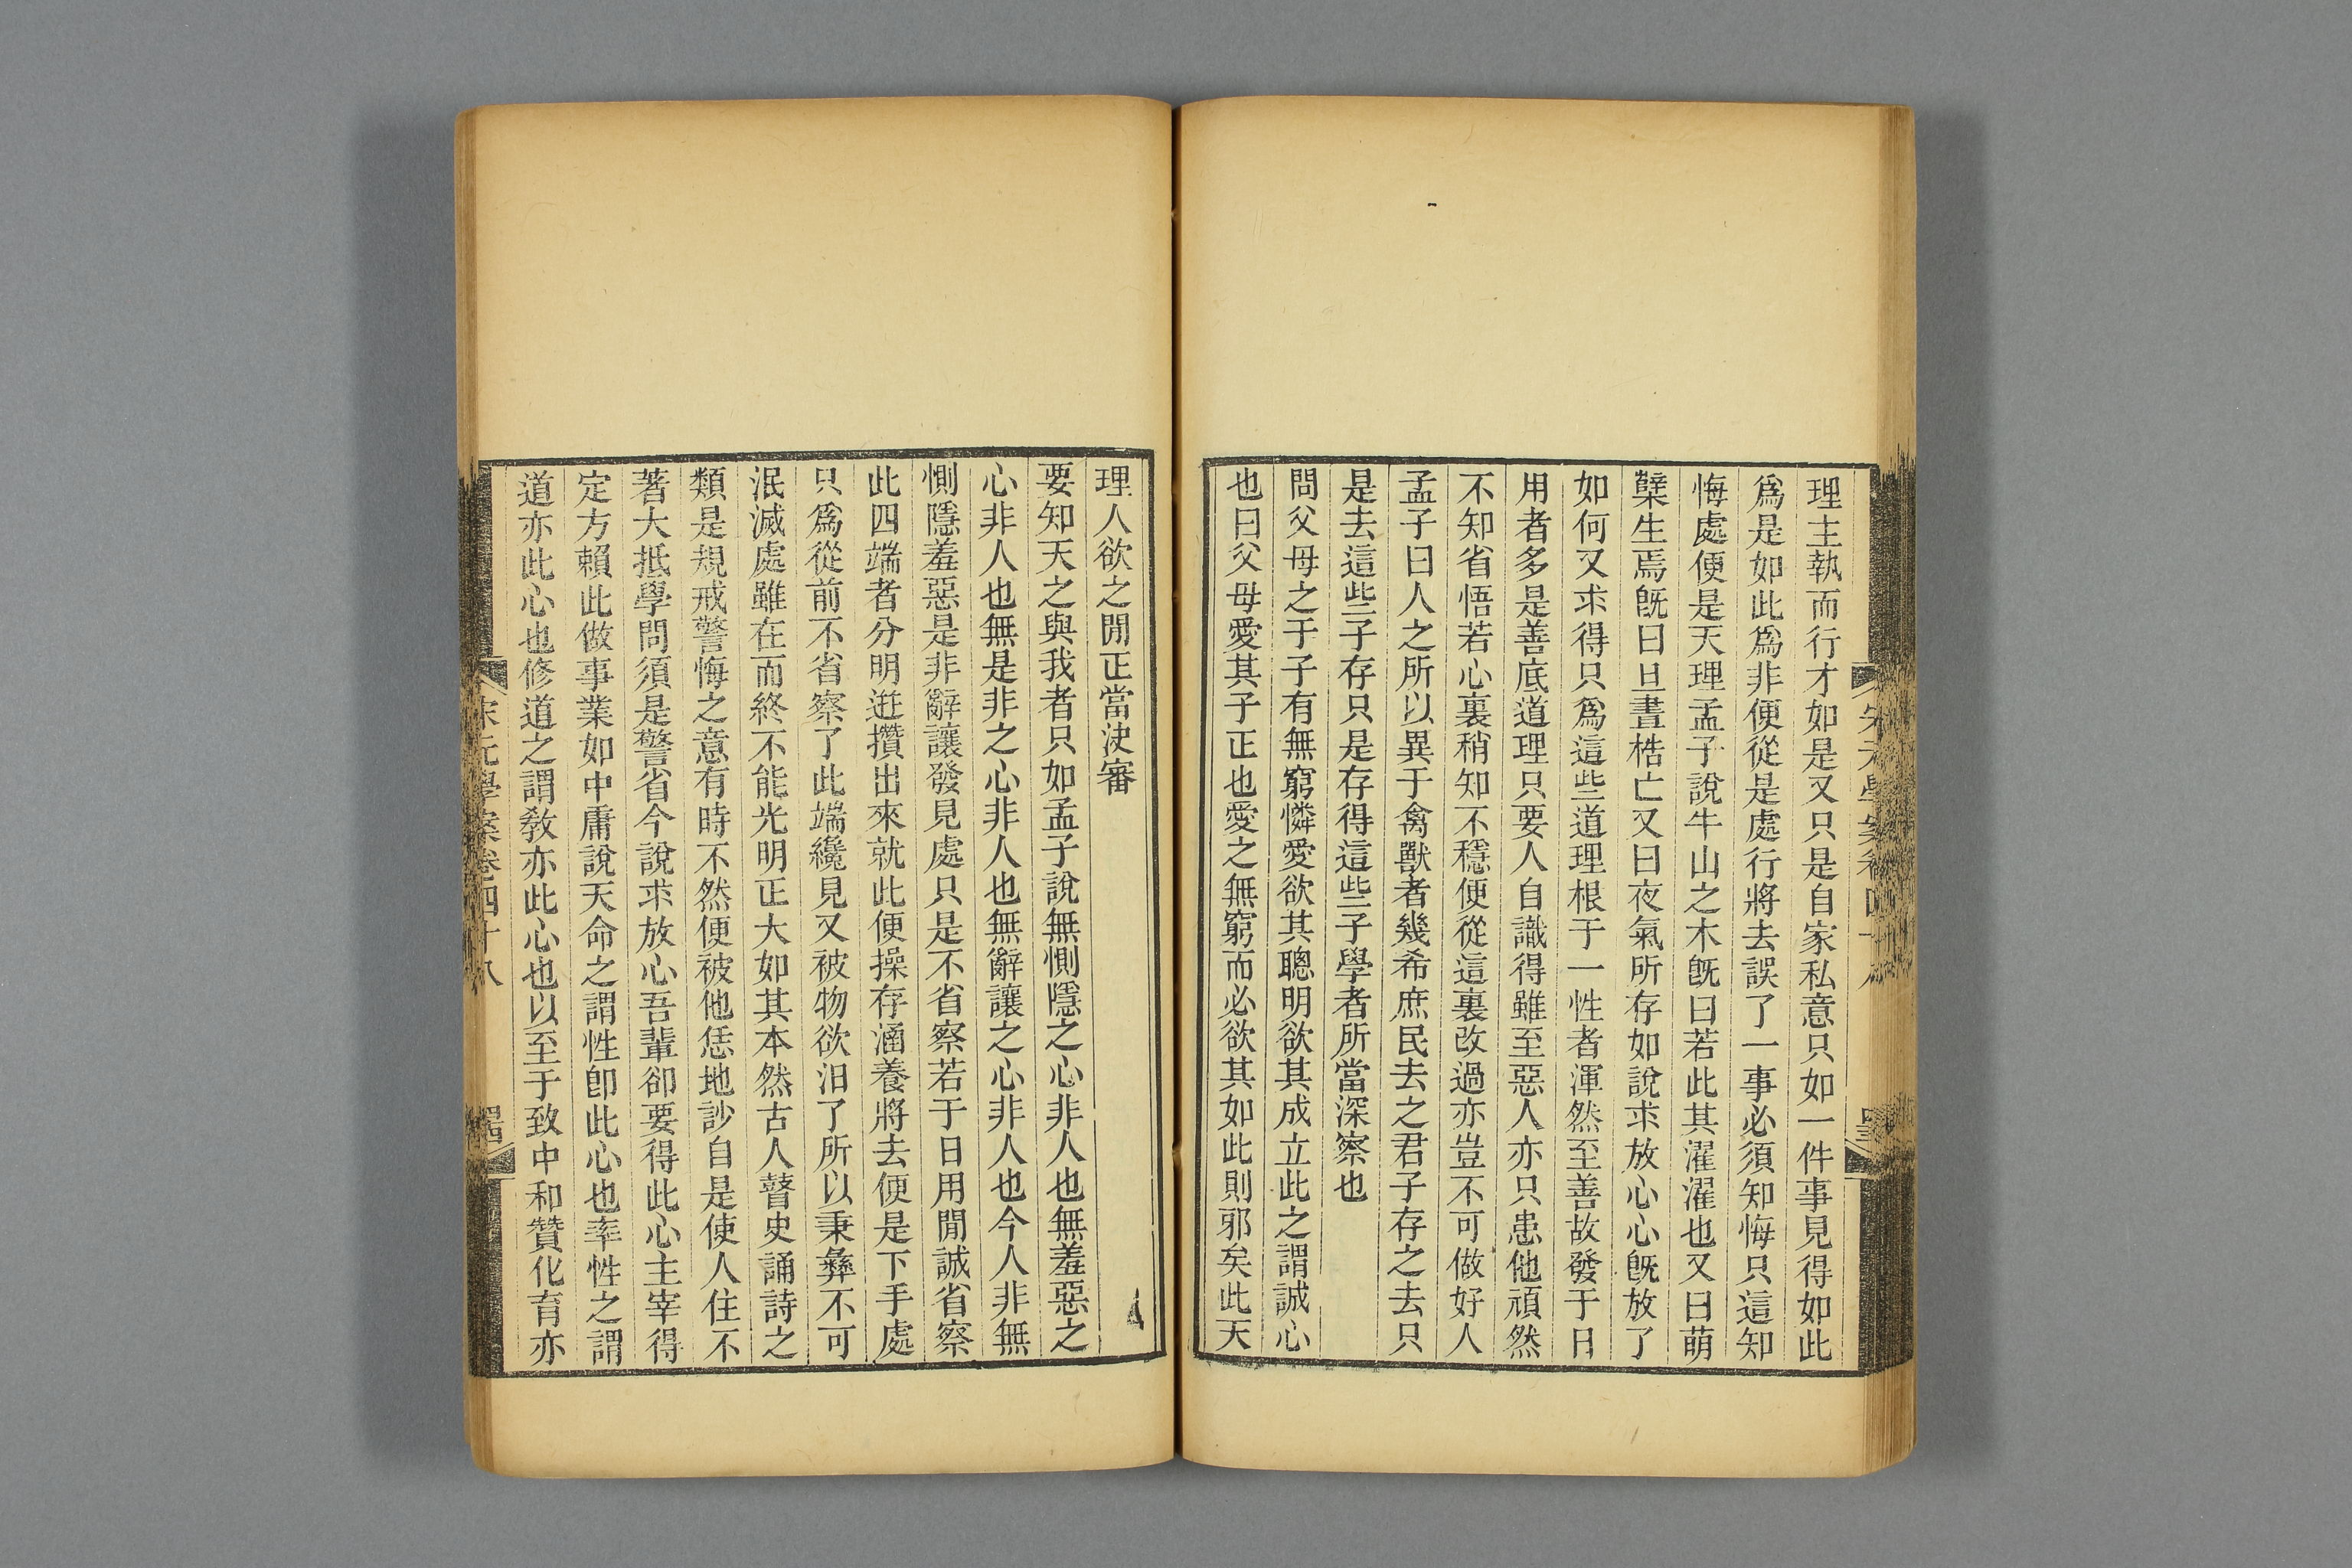 理主執而行才如是又只是自家私意只如一件事見得如此
爲是如此爲非便從是處行將去誤了一事必須知悔只這知
悔處便是天理孟子說牛山之木旣曰若此其濯濯也又曰萌
櫱生焉旣曰旦晝梏亡又曰夜氣所存如說求放心心旣放了
如何又求得只爲這些道理根于一性者渾然至善故發于日
用者多是善底道理只要人自識得雖至惡人亦只患他頑然
不知省悟若心裏稍知不穩便從這裏改過亦豈不可做好人
孟子曰人之所以異于禽獸者幾希庶民去之君子存之去只
是去這些子存只是存得這些子學者所當深察也
問父母之于子有無窮憐愛欲其聰明欲其成立此之謂誠心
也曰父母愛其子正也愛之無窮而必欲其如此則邪矣此天
理人欲之閒正當決審
要知天之與我者只如孟子說無惻隱之心非人也無羞惡之
心非人也無是非之心非人也無辭讓之心非人也今人非無
惻隱羞惡是非辭讓發見處只是不省察若于日用閒誠省察
此四端者分明迸攢出來就此便操存涵養將去便是下手處
只爲從前不省察了此端纔見又被物欲汨了所以秉彝不可
泯滅處雖在而終不能光明正大如其本然古人瞽史誦詩之
類是規戒警悔之意有時不然便被他恁地訬自是使人住不
著大抵學問須是警省今說求放心吾輩卻要得此心主宰得
定方賴此做事業如中庸說天命之謂性卽此心也率性之謂
道亦此心也修道之謂敎亦此心也以至于致中和贊化育亦
宋元學案卷四十八